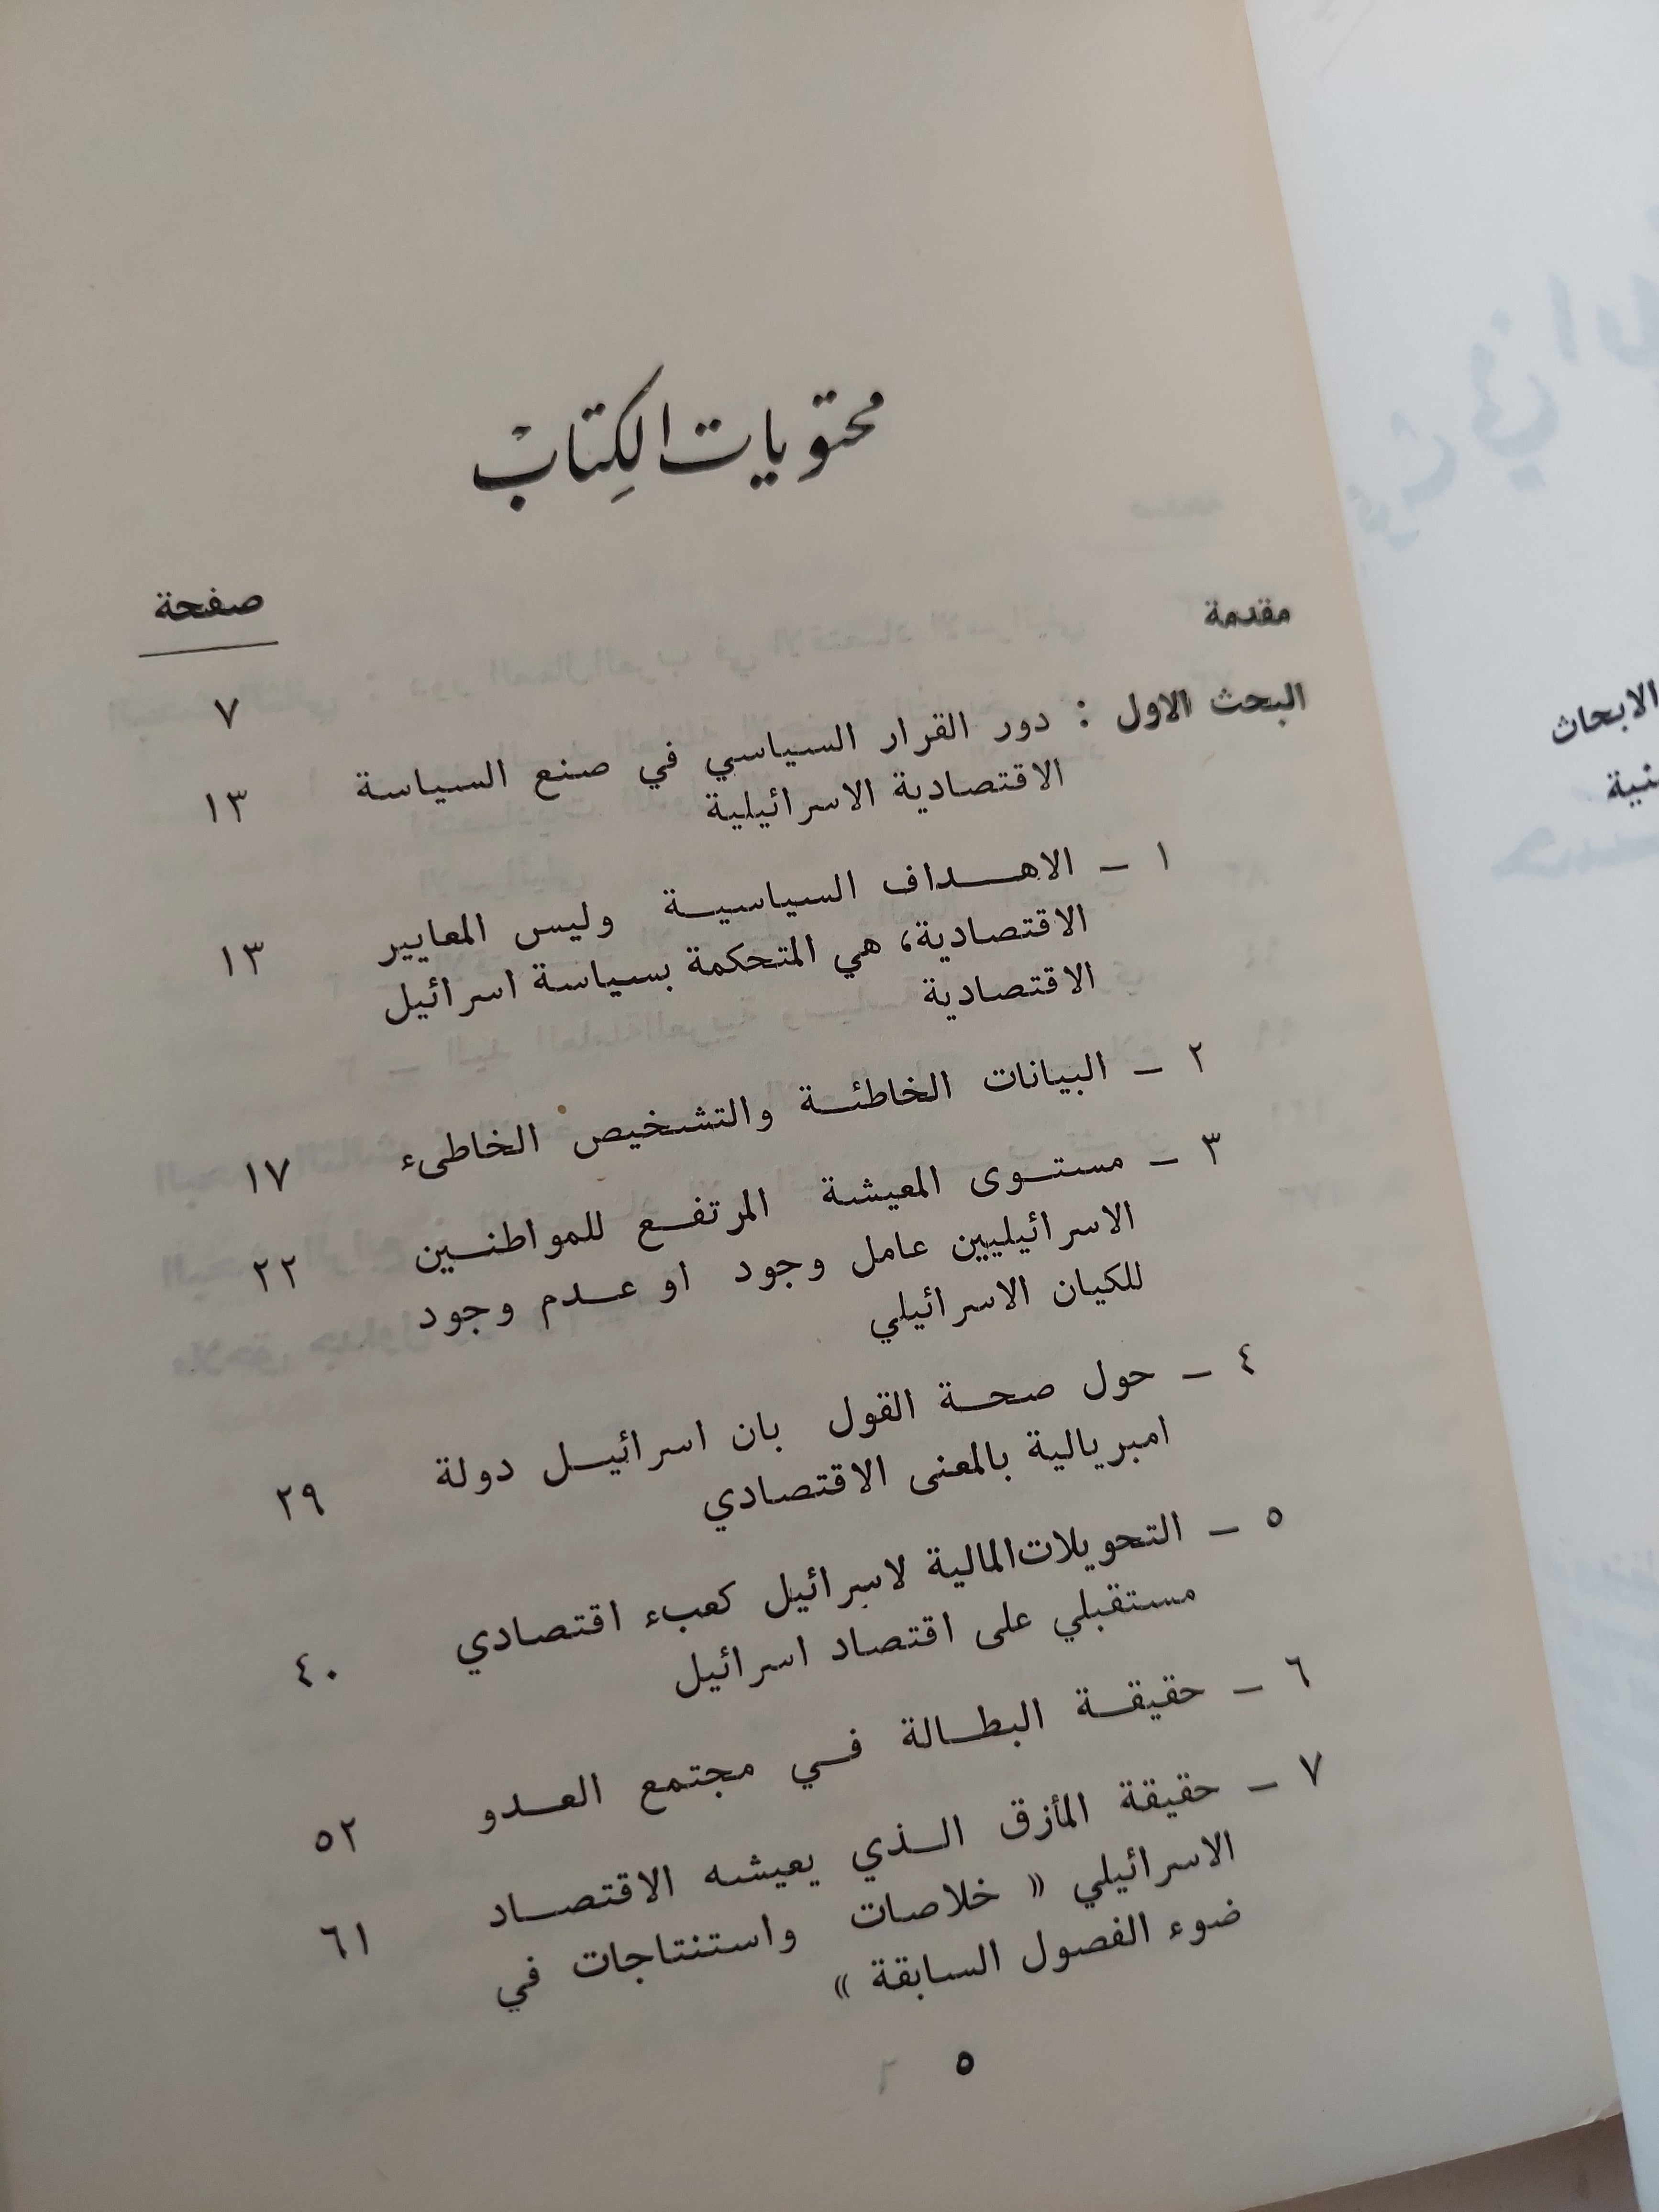 محتويات الكِتاب
صفحة
مقدمة ٧
البحث الاول : دور القرار السياسي في صنع السياسة ١٣
الاقتصادية الاسرائيلية
١ - الاهداف السياسية وليس المعايير ١٣
الاقتصادية، هي المتحكمة بسياسة اسرائيل
الاقتصادية
٢ - البيانات الخاطئة والتشخيص الخاطىء ١٧
٣ - مستوى المعيشة المرتفع للمواطنين ٢٢
الاسرائيليين عامل وجود او عدم وجود
للكيان الاسرائيلي
٤ - حول صحة القول بان اسرائيل دولة ٢٩
امبريالية بالمعنى الاقتصادي
٥ - التحويلات المالية لاسرائيل كعبء اقتصادي ٤٠
مستقبلي على اقتصاد اسرائيل
٦ - حقيقة البطالة في مجتمع العدو ٥٢
٧ - حقيقة المأزق الذي يعيشه الاقتصاد ٦١
الاسرائيلي « خلاصات واستنتاجات في
ضوء الفصول السابقة »
٥
الابحاث